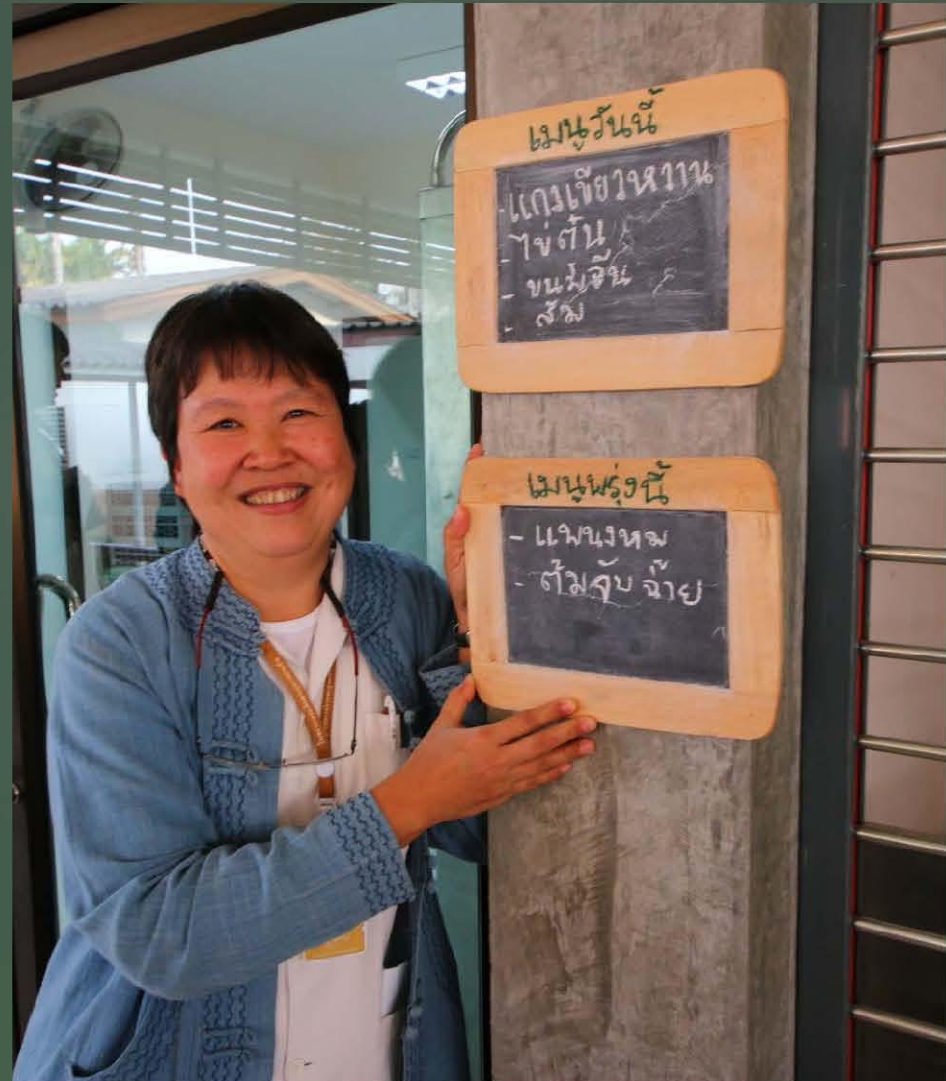 เมนูวันนี้
- แกงเขียวหวาน
- ไข่ต้น
- ขนมจีน
- ส้ม
เมนูพรุ่งนี้
- แพนงหมู
- ต้มจับฉ่าย